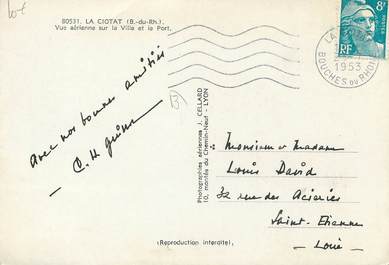 Lot
80531. LA CIOTAT (B.-du-Rh.)
Vue aérienne sur la Ville et le Port.
8F
RF
LA
1953
BOUCHES DU RHONE
Avec nos bonnes amitiés
Photographies aériennes J. CELLARD
10, montée du Chemin-Neuf - LYON
Monsieur et Madame
Louis David
32 rue des Aciéries
Saint-Etienne
- Loire -
(Reproduction interdite)